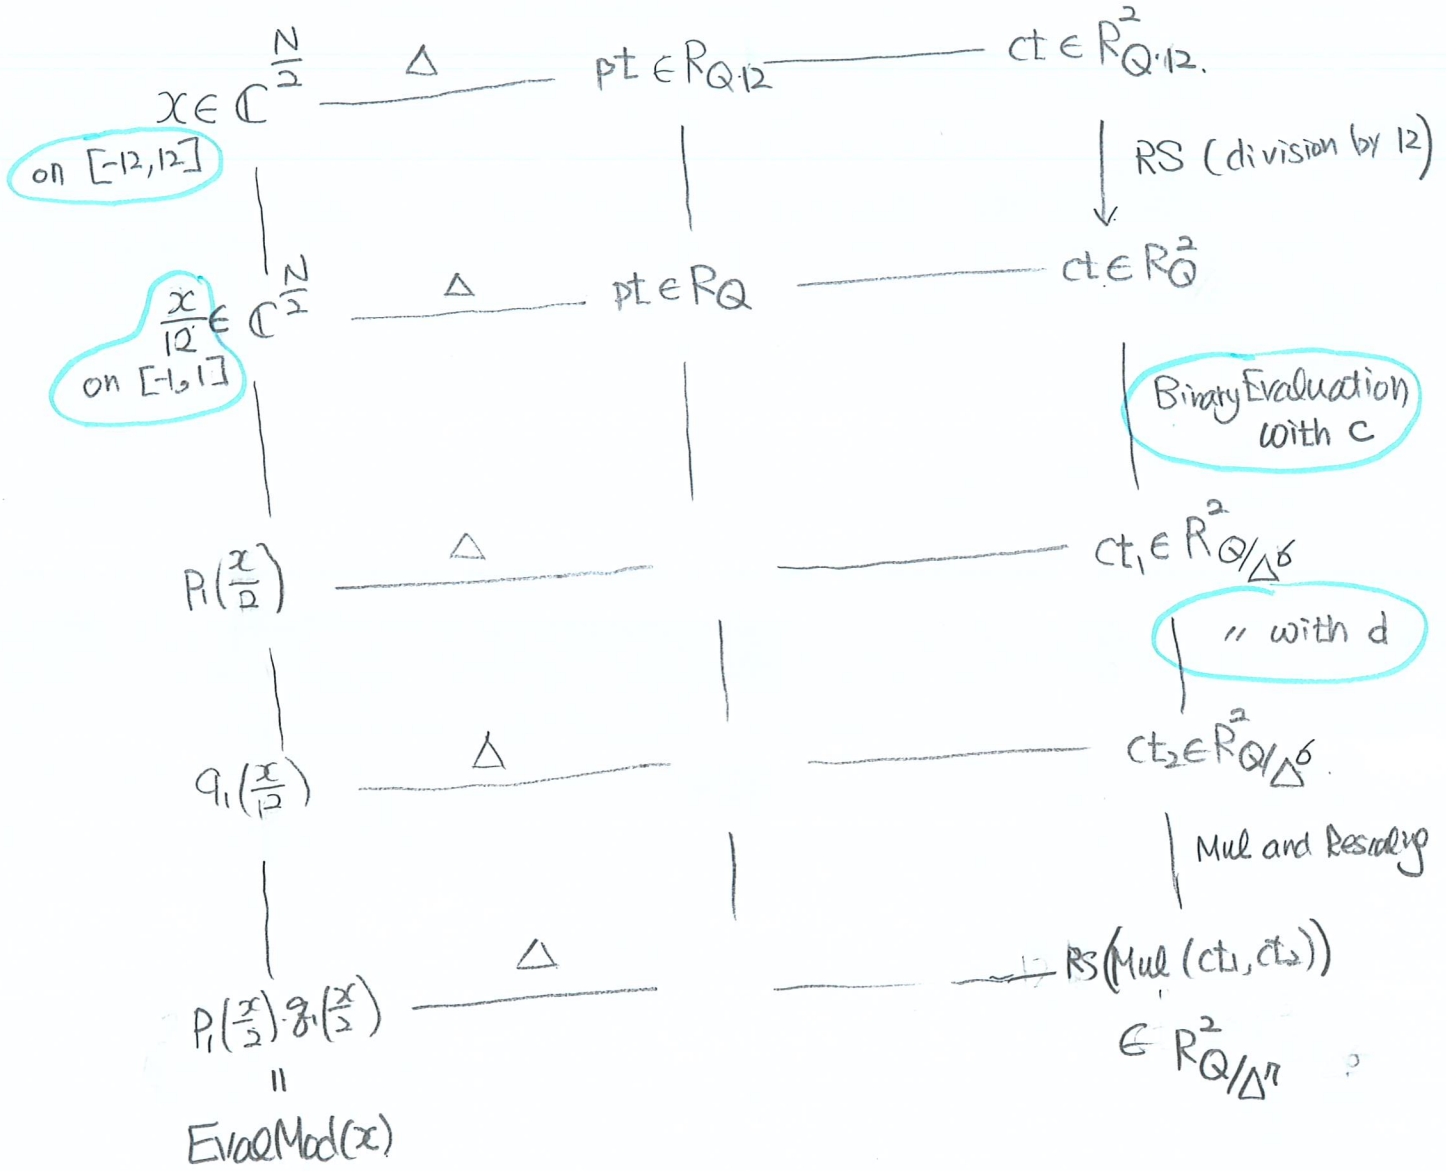 x ∈ ℂ^{N/2} Δ pt ∈ R_{Q·12} ct ∈ R²_{Q·12}.
on [-12, 12]
RS (division by 12)
x/12 ∈ ℂ^{N/2} Δ pt ∈ R_Q ct ∈ R²_Q
on [-1, 1]
Binary Evaluation
with c
P₁(x/2) Δ ct₁ ∈ R²_{Q/Δ⁶}
〃 with d
q₁(x/12) Δ ct₂ ∈ R²_{Q/Δ⁶}.
Mul and Rescaling
P₁(x/2)·q₁(x/2) Δ RS(Mul(ct₁, ct₂))
∈ R²_{Q/Δ⁷}
=
EvalMod(x)